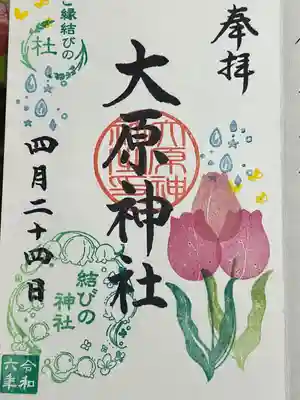 奉拝
大原神社
大原神社
ご縁結びの
社
四月二十四日
結びの
神社
令和
六年